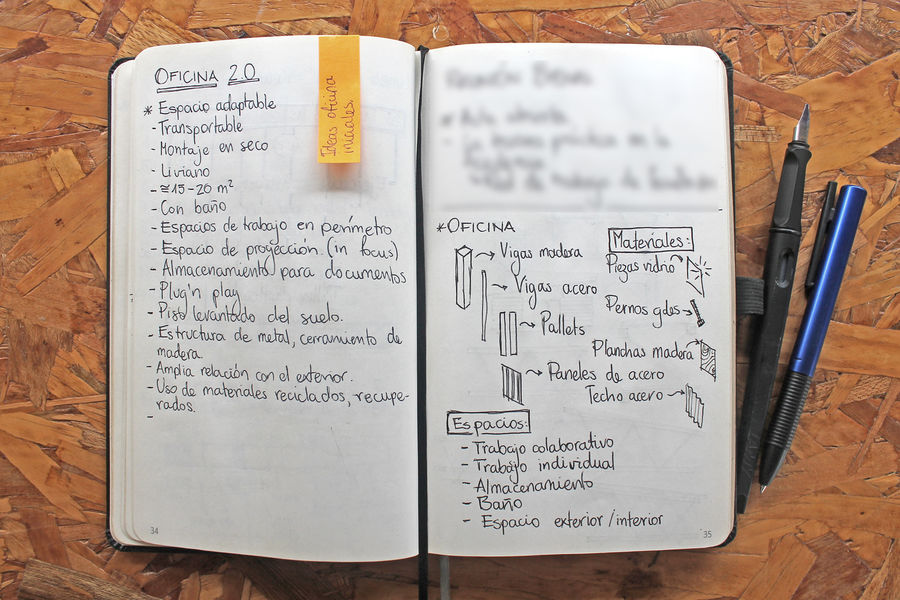 OFICINA 2.0
* Espacio adaptable
- Transportable
- Montaje en seco
- Liviano
- ≅ 15-20 m²
- Con baño
- Espacios de trabajo en perímetro
- Espacio de proyección (in focus)
- Almacenamiento para documentos
- Plug'n play
- Piso levantado del suelo.
- Estructura de metal, cerramiento de
madera.
- Amplia relación con el exterior.
- Uso de materiales reciclados, recupe-
rados.
-
Ideas oficina
iniciales.
34
* OFICINA
Vigas madera
Vigas acero
Pallets
Paneles de acero
Materiales:
Piezas vidrio
Pernos gdes
Planchas madera
Techo acero
Espacios:
- Trabajo colaborativo
- Trabajo individual
- Almacenamiento
- Baño
- Espacio exterior/interior
35